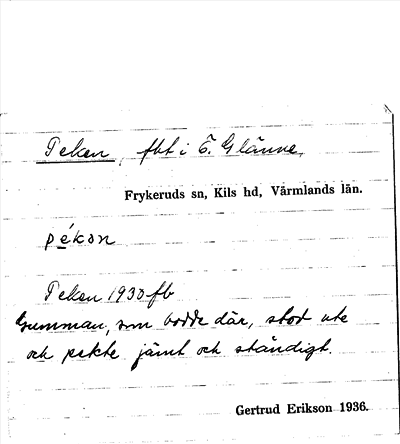 Peken, fbt i Ö. Glänne,
Frykeruds sn, Kils hd, Värmlands län.
pékon
Peken 1930 fb
Gumman, som bodde där, stod ute
och pekte jämt och ständigt.
Gertrud Erikson 1936.